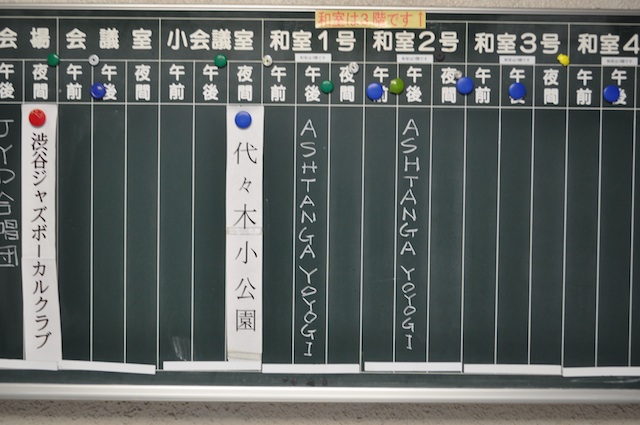 和室は3階です！
会場 会議室 小会議室 和室1号 和室2号 和室3号 和室4
午後 夜間 午前 午後 夜間 午前 午後 夜間 午前 午後 夜間 午前 午後 夜間 午前 午後 夜間 午前 午後
合唱団
渋谷ジャズボーカルクラブ
代々木小公園
ASHTANGA YOYOGI
ASHTANGA YOYOGI